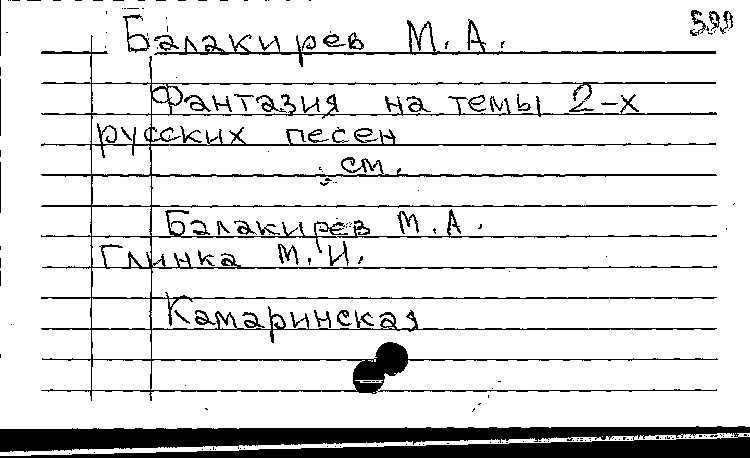 Балакирев М.А.
Фантазия на темы 2-х
русских песен
см.
Балакирев М.А.
Глинка М.И.
Камаринская